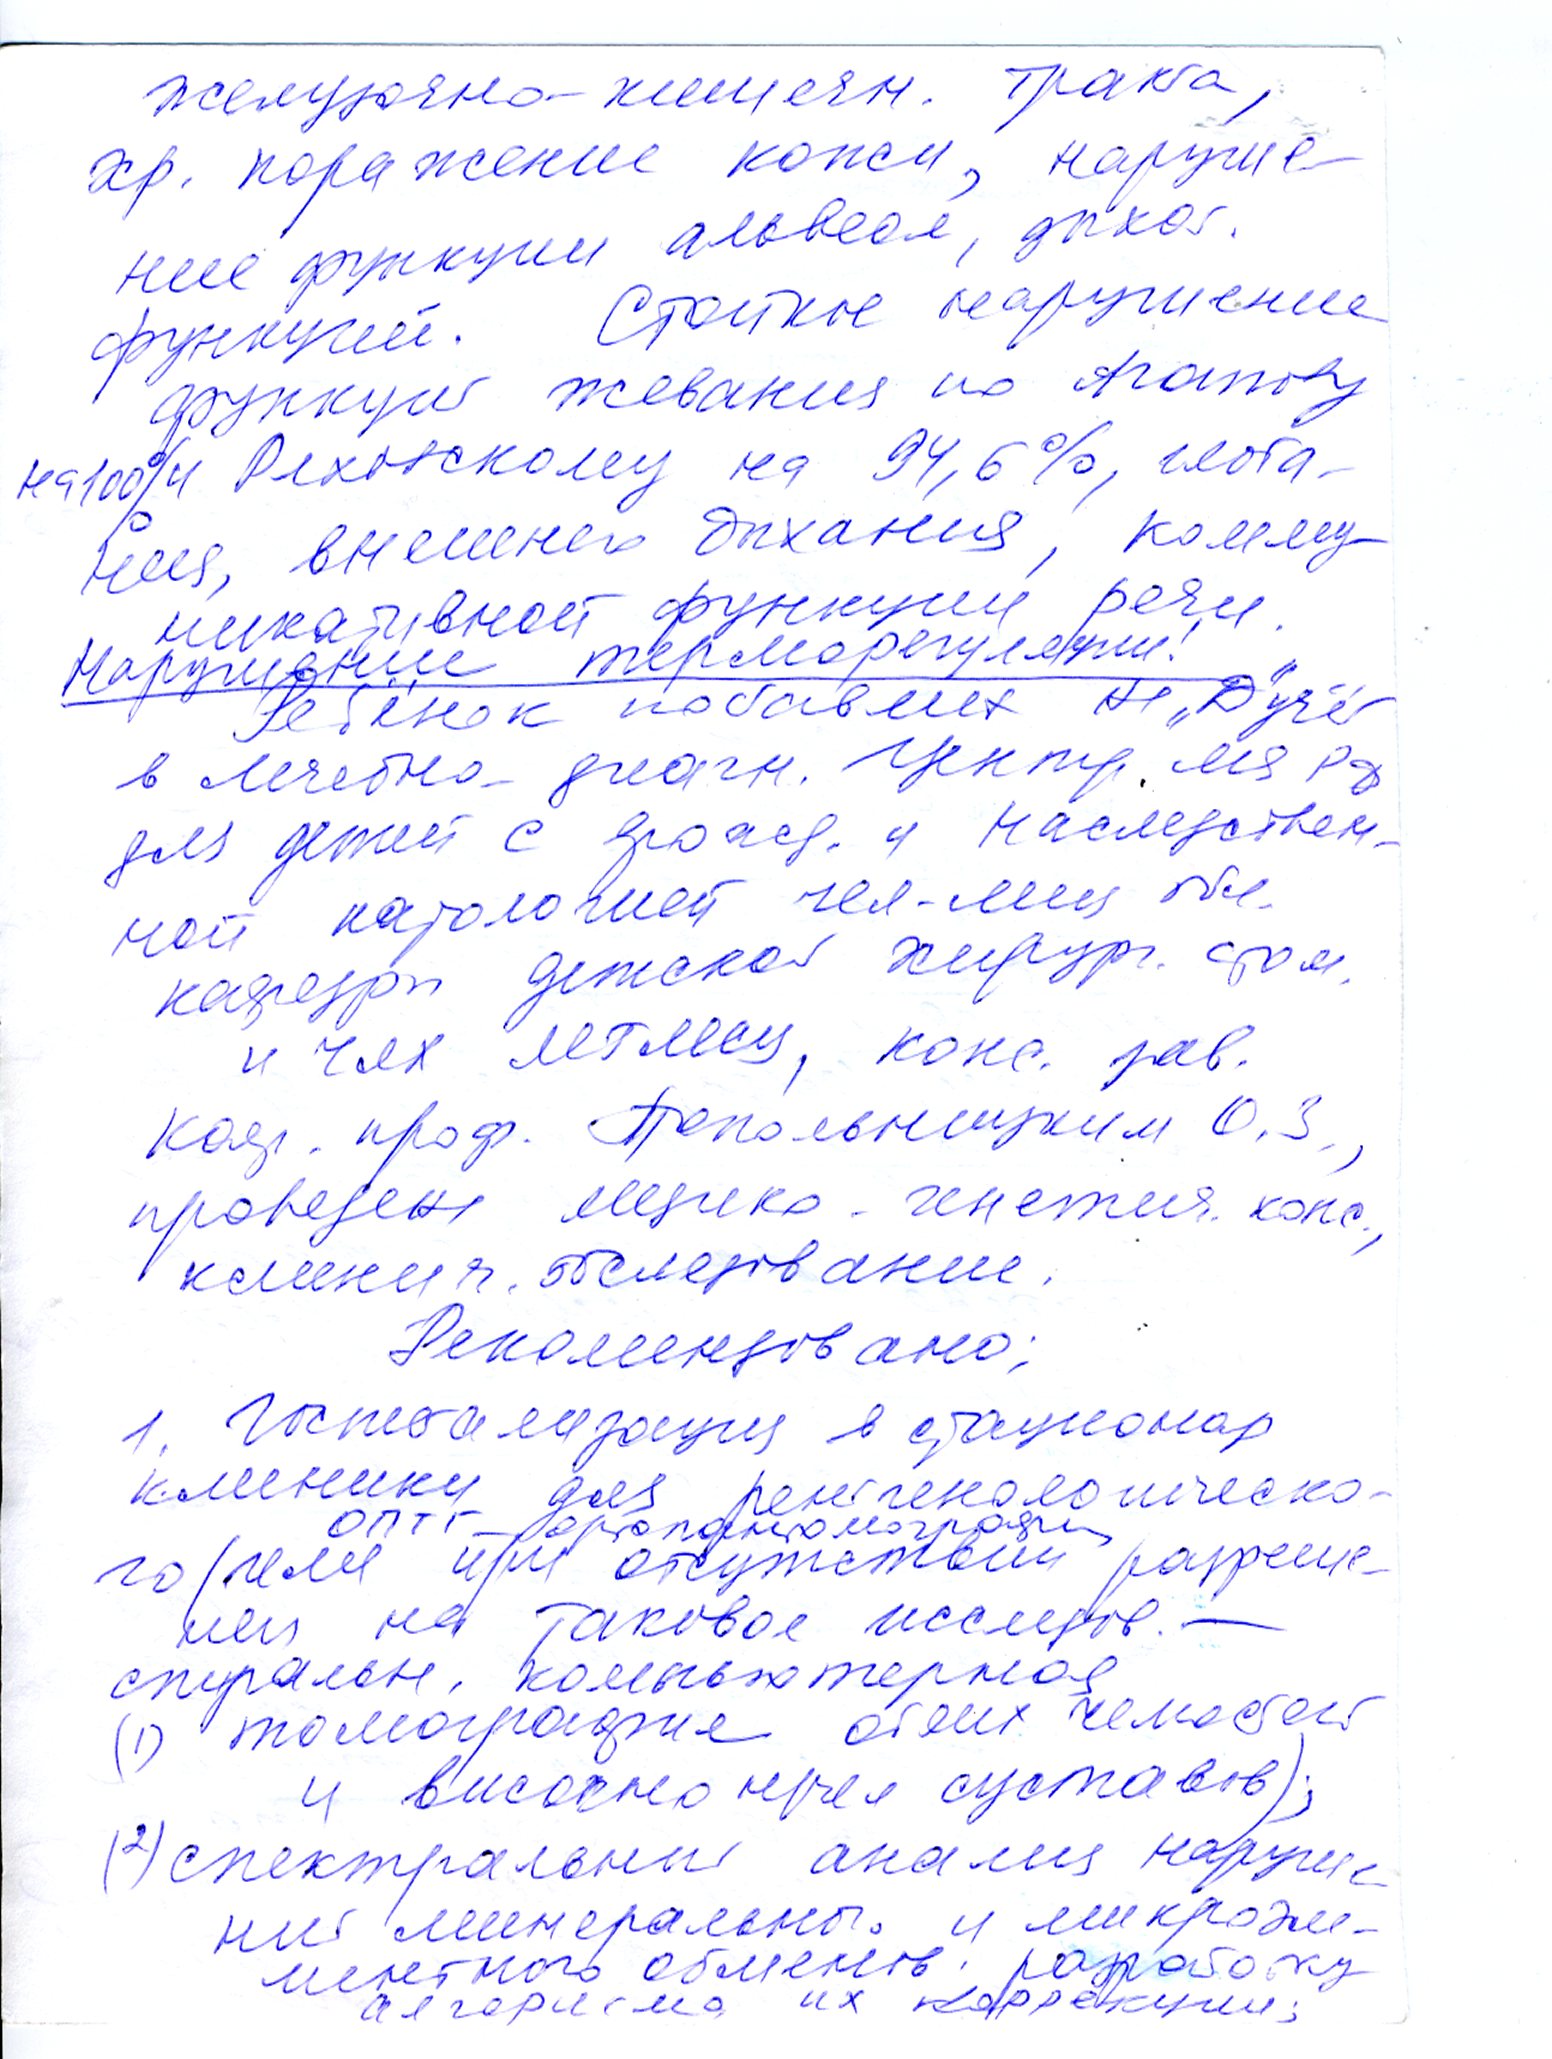 желудочно-кишечн. тракта,
хр. поражение кожи, наруше-
ние функции альвеол, дыхат.
функций. Стойкое нарушение
функций жевания по Агапову
на 100% и Ряховскому на 94,6%, глота-
ния, внешнего дыхания, комму-
никативной функции речи.
Нарушение терморегуляции!
Ребёнок поставлен на „Д" учёт
в лечебно-диагн. Центр. МЗ РФ
для детей с врожд. и наследствен-
ной патологией чел-лиц обл.
кафедры детской хирург. стом.
и ЧЛХ МГМСУ, конс. зав.
каф. проф. Топольницким О.З.,
проведена медико-генетич. конс.,
клинич. обследование.
Рекомендовано:
1. Госпитализация в стационар
клиники для рентгенологическо-
ОПТГ - ортопантомография
го (или при отсутствии разреше-
ния на таковое исследов. —
спиральн. компьютерная
(1) томография обеих челюстей
и височно нчел суставов);
(2) спектральный анализ наруше-
ний минеральн. и микроэле-
ментного обменов. разработку
алгоритма их коррекции;